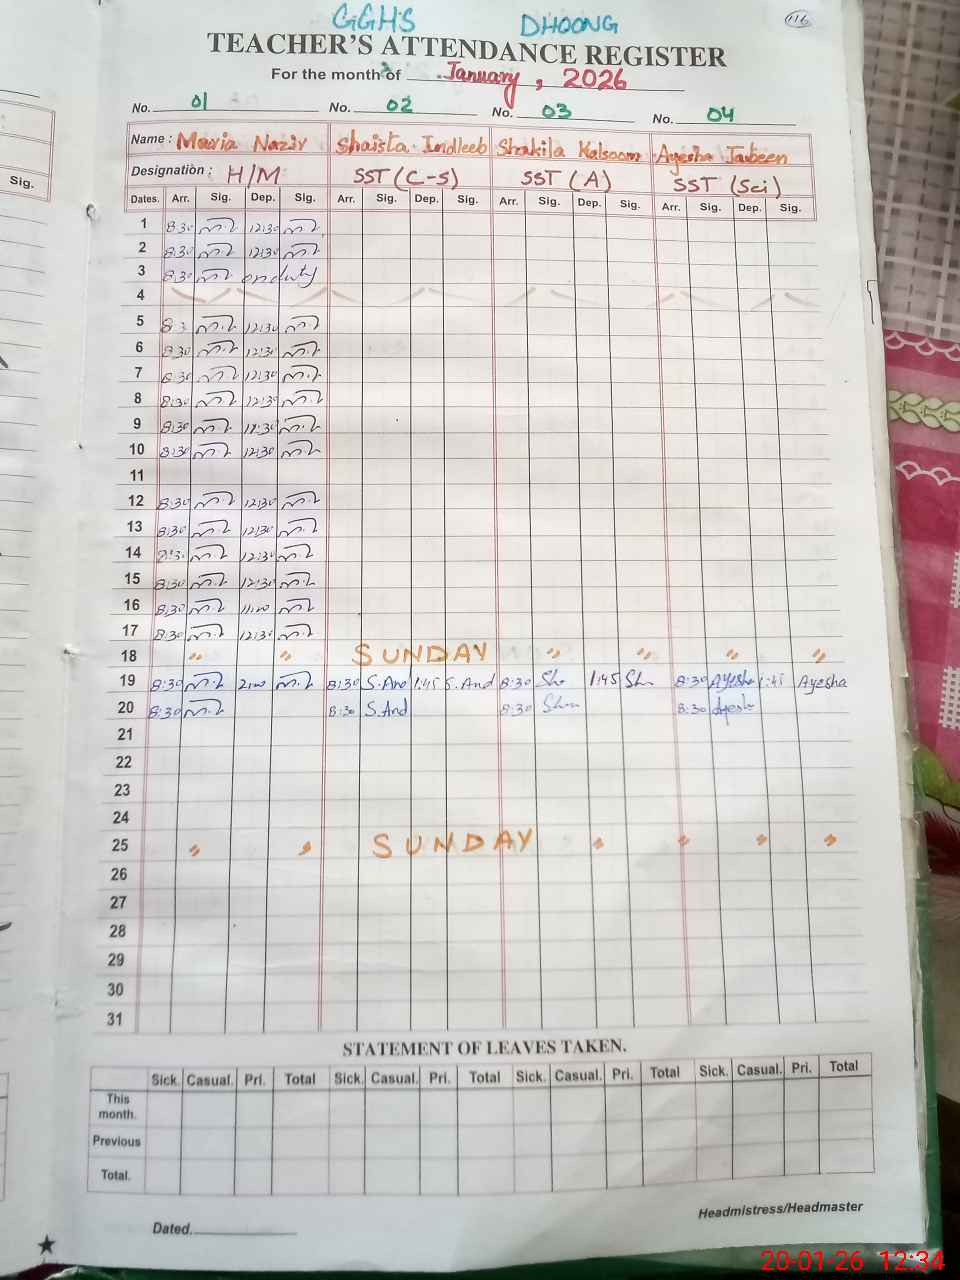 GGHS DHOONG
116
TEACHER'S ATTENDANCE REGISTER
For the month of January, 2026
No. 01 No. 02 No. 03 No. 04
Name: Mavia Naziv Shaista Indleeb Shakila Kalsoom Ayesha Jabeen
Designation: H/M SST (C-S) SST (A) SST (Sci)
Sig.
Dates. Arr. Sig. Dep. Sig. Arr. Sig. Dep. Sig. Arr. Sig. Dep. Sig. Arr. Sig. Dep. Sig.
1 8:30 12:30
2 8:30 12:30
3 8:30 on duty
4
5 8:3 12:30
6 8:30 12:30
7 8:30 12:30
8 8:30 12:30
9 8:30 11:30
10 8:30 12:30
11
12 8:30 12:30
13 8:30 12:30
14 8:30 12:30
15 8:30 12:30
16 8:30 11:00
17 8:30 12:30
18 " " SUNDAY " " " "
19 8:30 2:00 8:30 S.And 1:45 S.And 8:30 Sha 1:45 Sha 8:30 Ayesha 1:45 Ayesha
20 8:30 8:30 S.And 8:30 Sha 8:30 Ayesha
21
22
23
24
25 " " SUNDAY " " " "
26
27
28
29
30
31
STATEMENT OF LEAVES TAKEN.
Sick. Casual. Pri. Total Sick. Casual. Pri. Total Sick. Casual. Pri. Total Sick. Casual. Pri. Total
This month.
Previous
Total.
Dated.
Headmistress/Headmaster
20-01-26 12:34